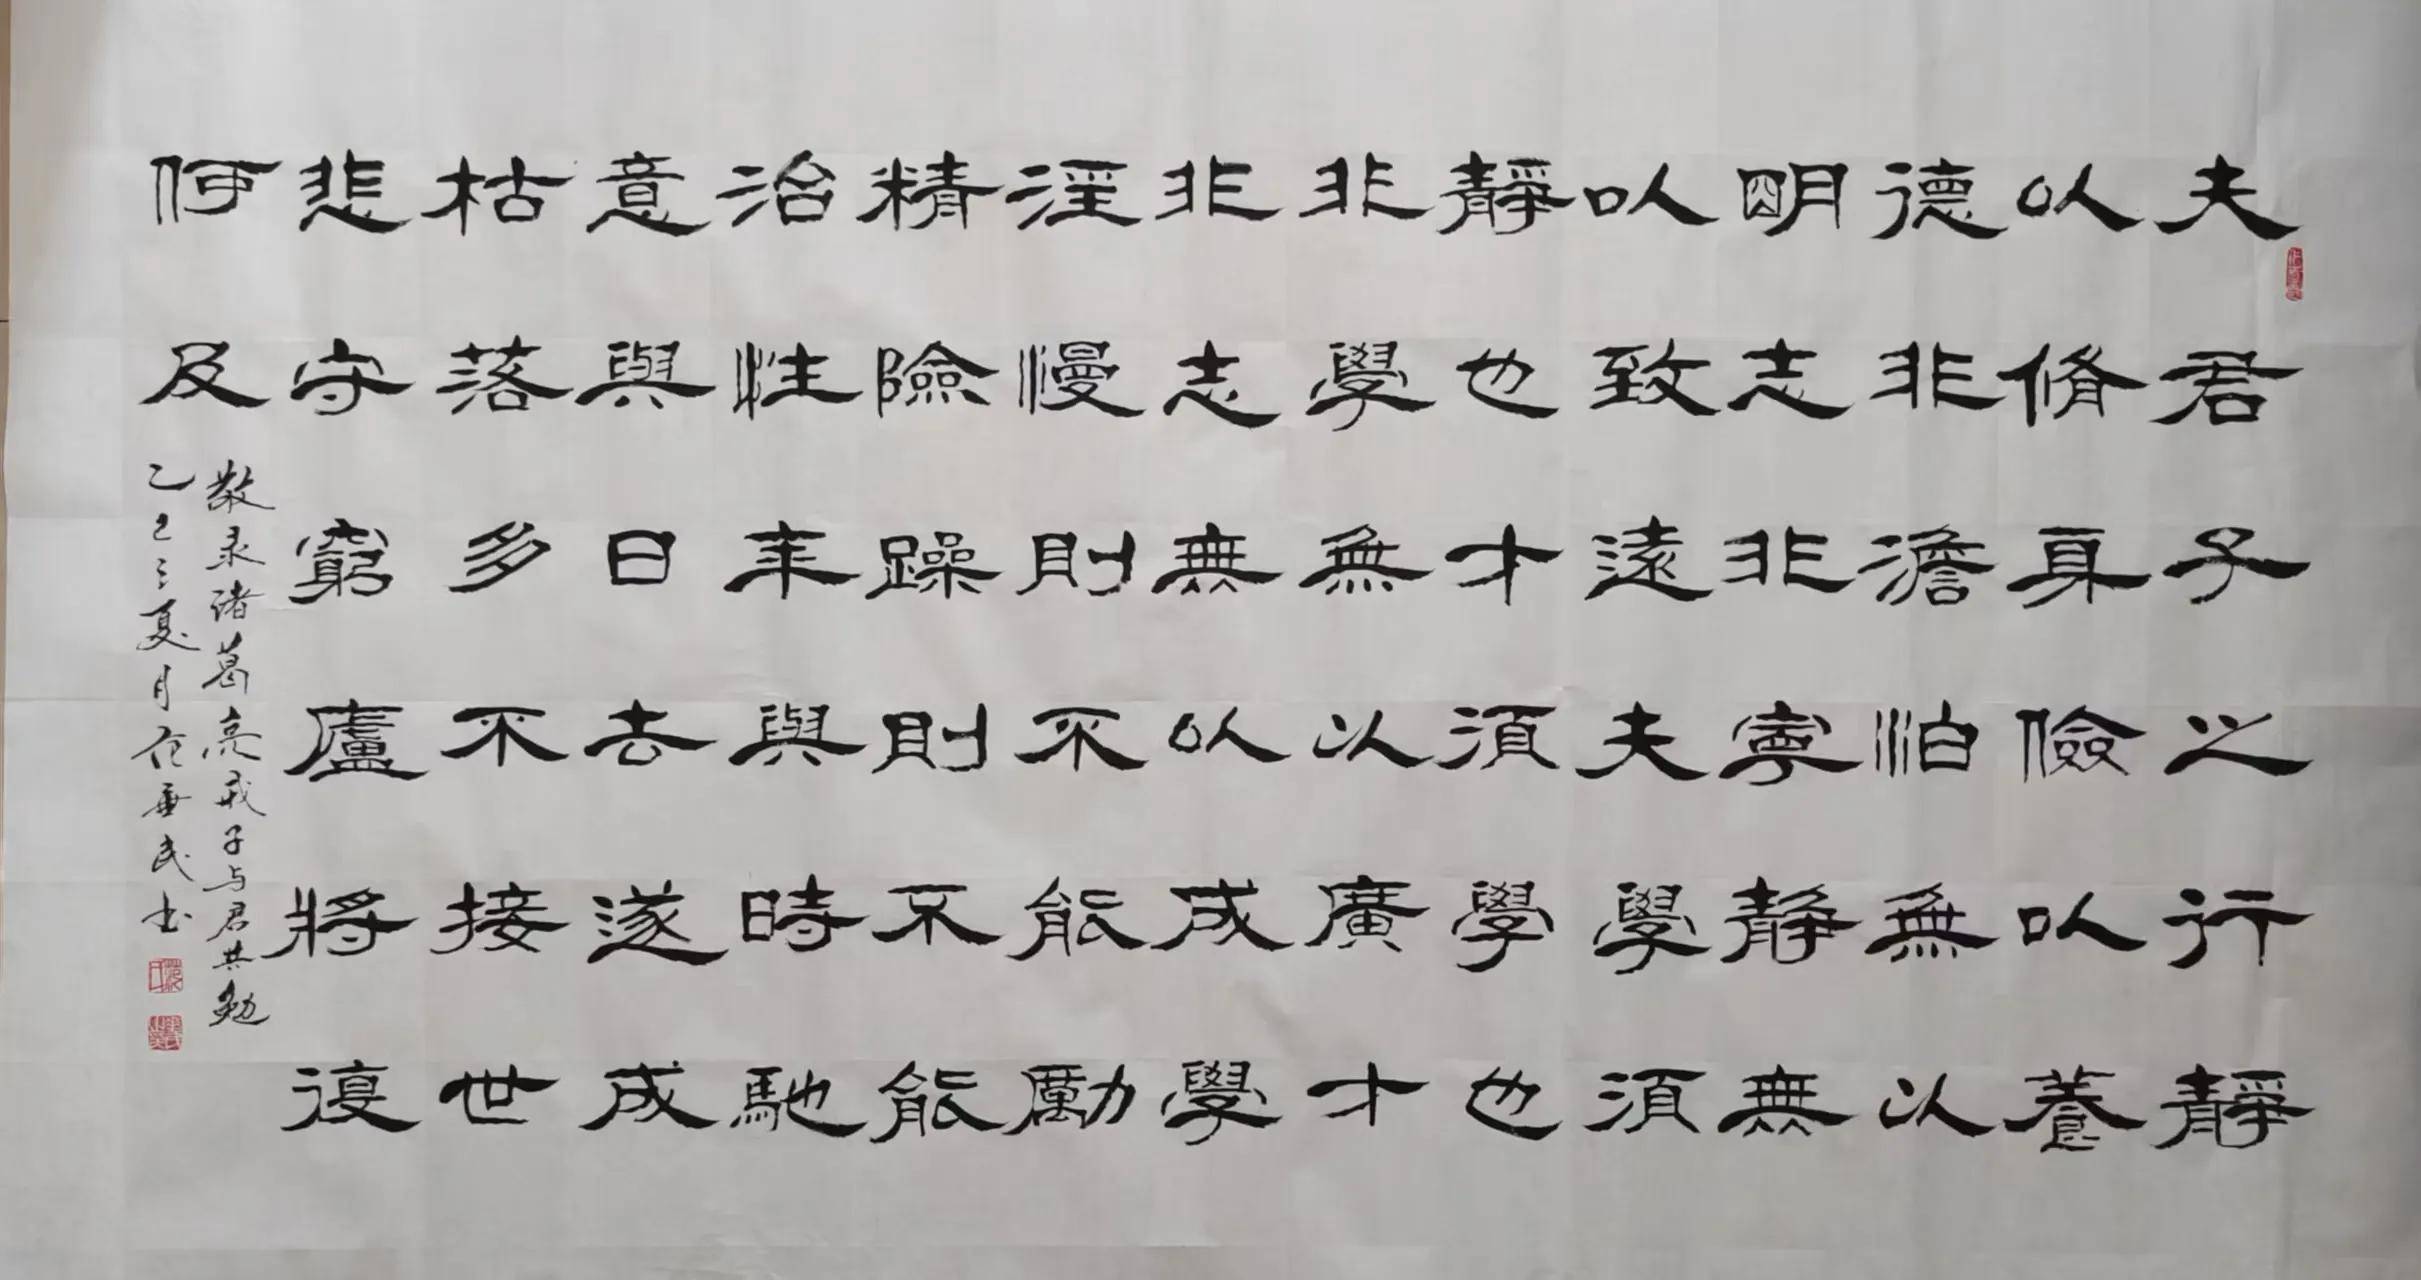 夫君子之行靜
以脩身儉以養
德非澹泊無以
明志非寧靜無
以致遠夫學須
靜也才須學也
非學無以廣才
非志無以成學
淫慢則不能勵
精險躁則不能
治性年與時馳
意與日去遂成
枯落多不接世
悲守窮廬將復
何及
敬录诸葛亮戒子与君共勉
乙巳之夏月范民书